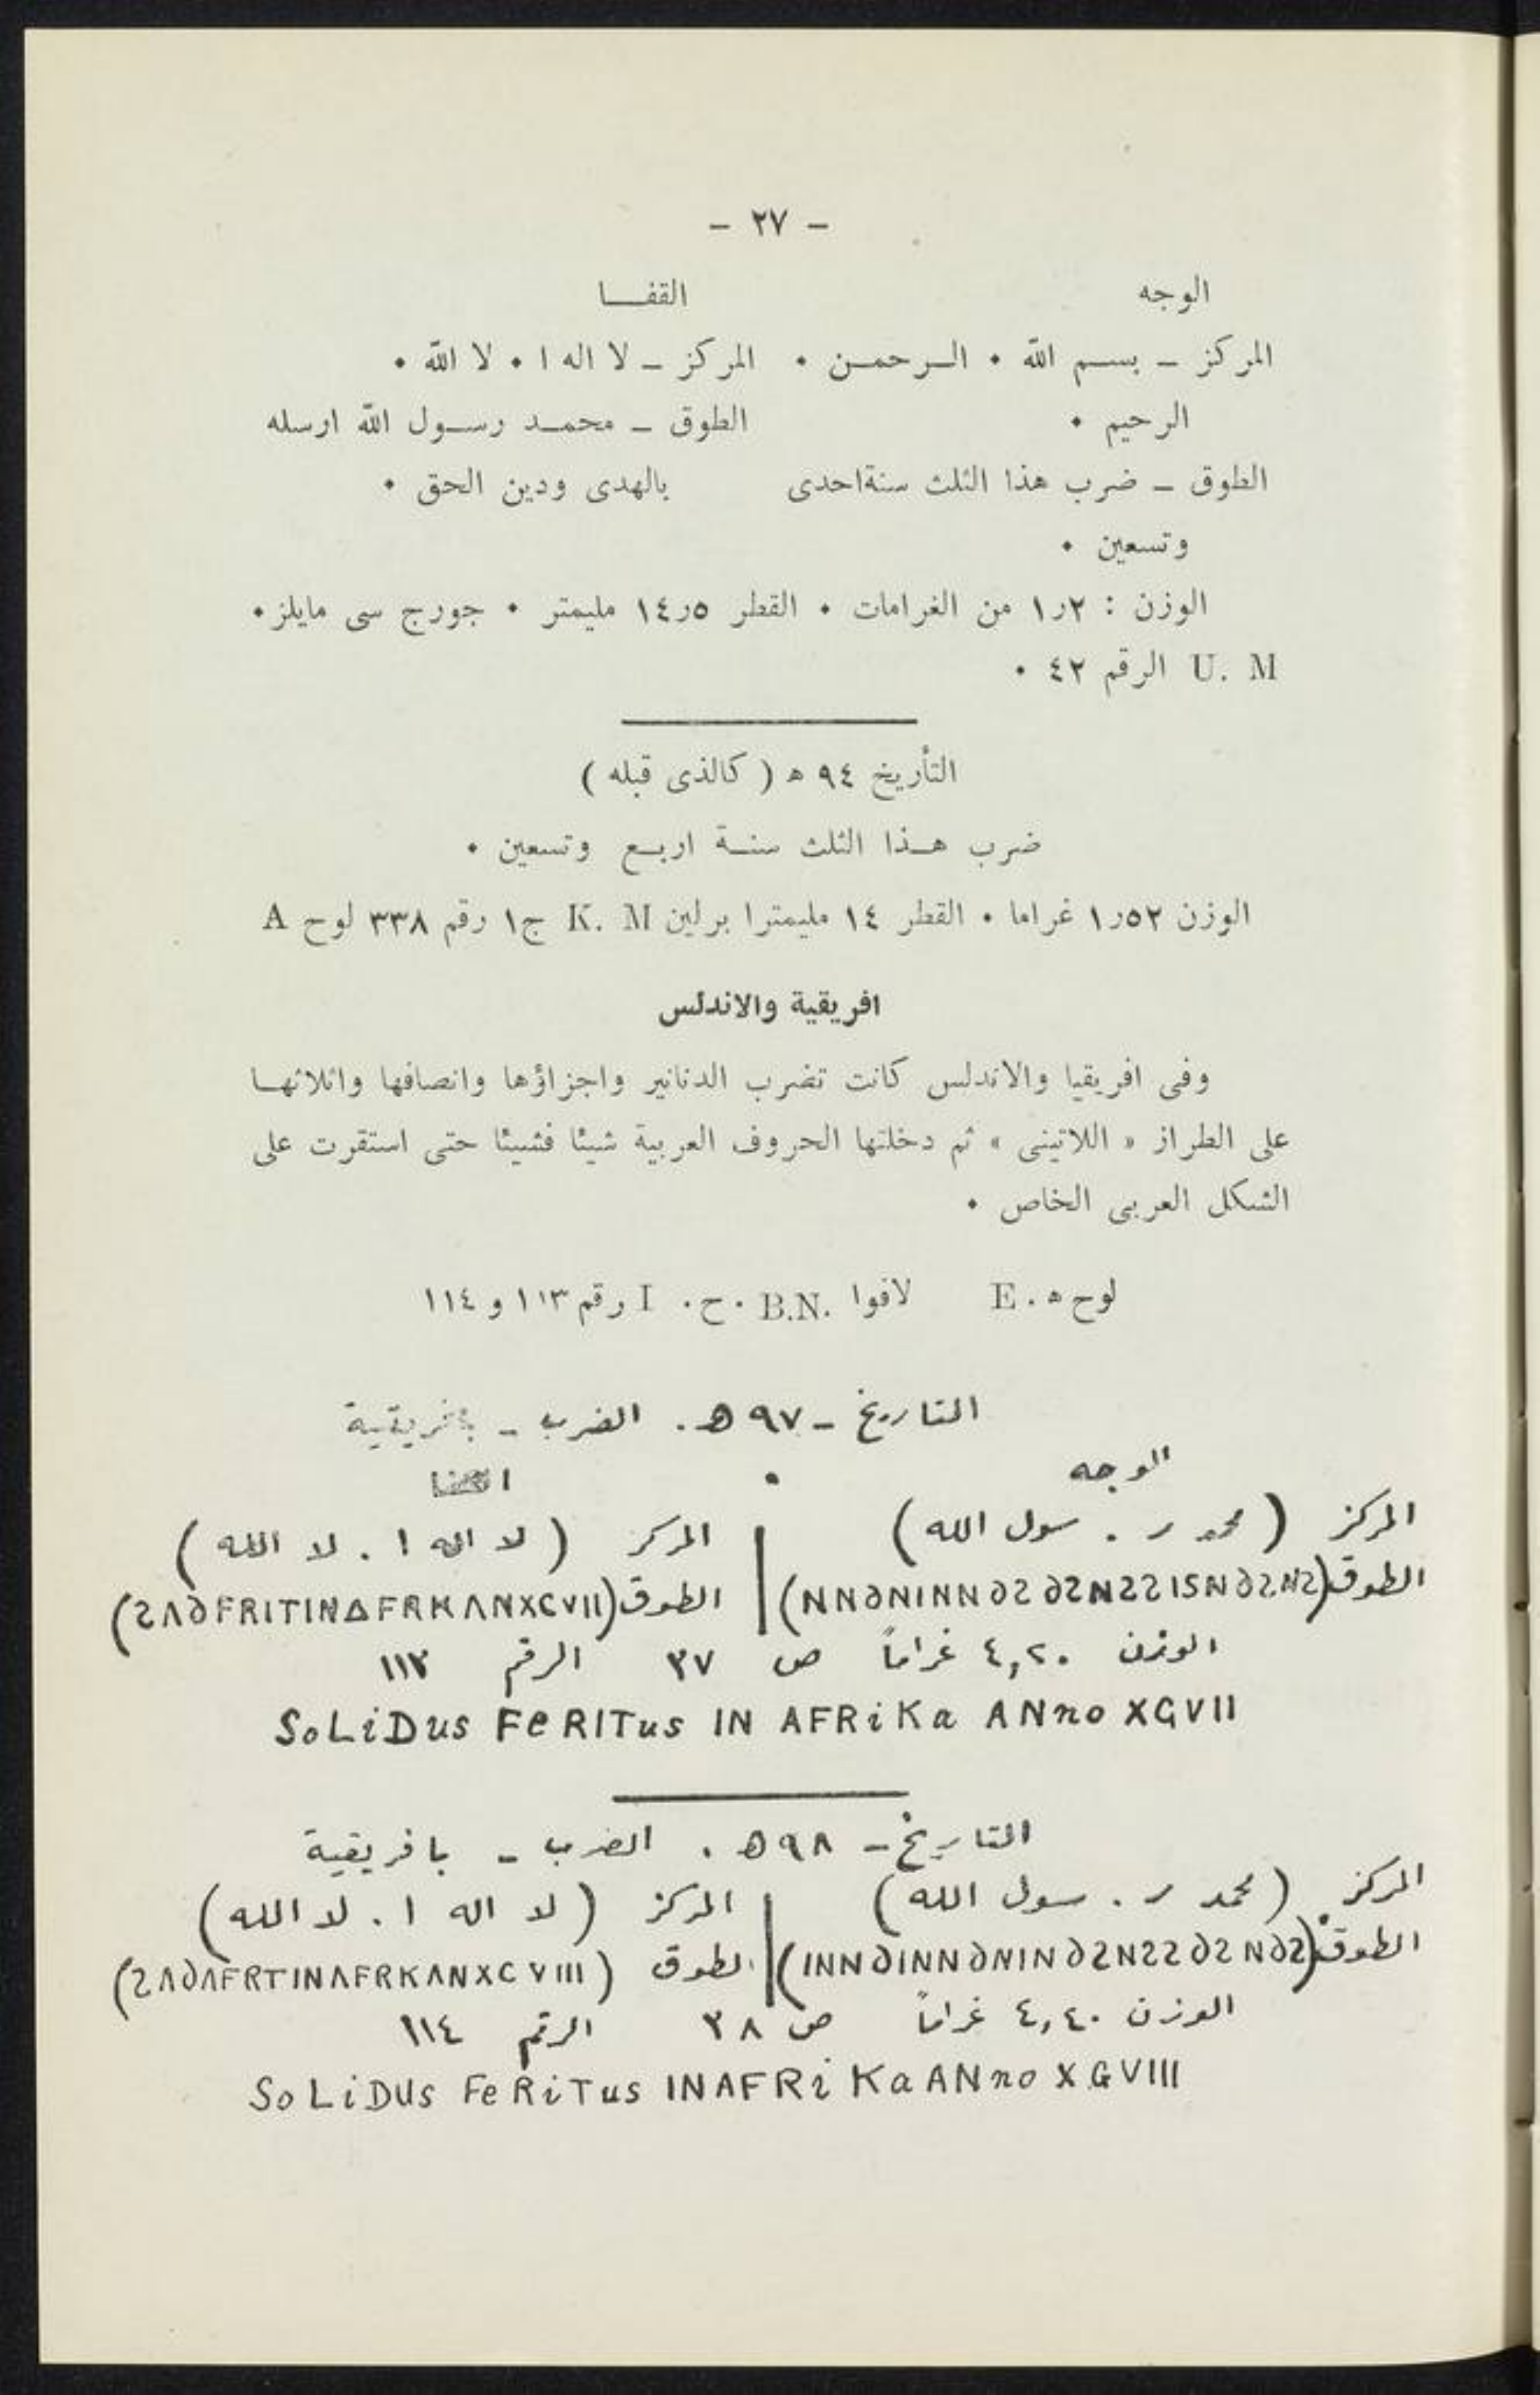 - ٢٧ -
الوجه القفا
المركز - بسم الله . الرحمن . المركز - لا اله ا . لا الله .
الرحيم . الطوق - محمد رسول الله ارسله
الطوق - ضرب هذا الثلث سنةاحدى بالهدى ودين الحق .
وتسعين .
الوزن : ٢ر١ من الغرامات . القطر ٥ر١٤ مليمتر . جورج سى مايلز .
U. M الرقم ٤٢ .
التأريخ ٩٤ ه ( كالذى قبله )
ضرب هذا الثلث سنة اربع وتسعين .
الوزن ٥٢ر١ غراما . القطر ١٤ مليمترا برلين K. M ج١ رقم ٣٣٨ لوح A
افريقية والاندلس
وفى افريقيا والاندلس كانت تضرب الدنانير واجزاؤها وانصافها واثلاثها
على الطراز « اللاتينى » ثم دخلتها الحروف العربية شيئا فشيئا حتى استقرت على
الشكل العربى الخاص .
لوح ه . E لافوا B.N. . ح . I رقم ١١٣ و ١١٤
التاريخ - ٩٧ ه . الضرب - بافريقية
الوجه القفا
المركز ( محمد ر . سول الله ) المركز ( لا اله ا . لا الله )
الطوق الطوق (ƧΛ∂FRITINΔFRKΛNXCVII)
الوزن ٤,٢٠ غراماً ص ٣٧ الرقم ١١٣
SoLiDus FeRITus IN AFRiKa ANno XGVII
التاريخ - ٩٨ ه . الضرب - بافريقية
المركز ( محمد ر . سول الله ) المركز ( لا اله ا . لا الله )
الطوق الطوق (ƧΛ∂ΛFRTINΛFRKΛNXCVIII)
الوزن ٤,٤٠ غراماً ص ٣٨ الرقم ١١٤
SoLiDUs FeRiTus INAFRiKaANno XGVIII